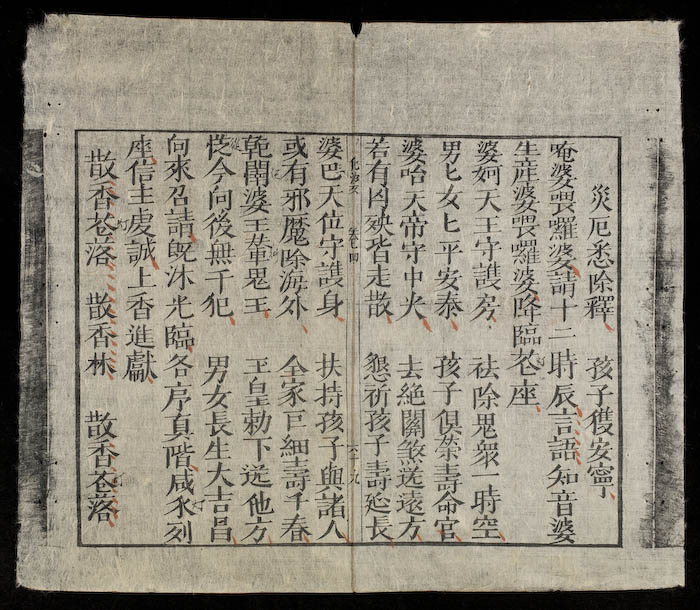 災厄悉除釋　孩子獲安寧
唵婆喂囉婆請十二時辰言語知音婆
生産婆喂囉婆降臨花座
婆妸大王守護房　祛除鬼衆一時空
男匕女匕平安泰　孩子俱荣壽命官
婆咍天帝守中央　去絶關煞送遠方
若有凶殃皆走散　懇祈孩子壽延長
婆巴天位守護身　扶持孩子與諸人
或有邪魔除海外　全家巨細壽千春
乹闥婆王輩鬼王　玉皇勅下送他方
從今向後無干犯　男女長生大吉昌
向來召請旣沐光臨各序真階咸永列
座信主虔誠上香進獻
散香花落　散香林　散香花落